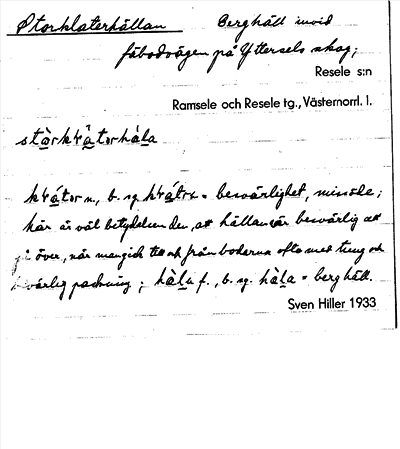 Storklaterhällan Berghäll invid
fäbodvägen på Yttersels skog;
Resele s:n
Ramsele och Resele tg., Västernorrl. l.
klrátor n., b. sg. = besvärlighet, missöde;
här är väl betydelsen den, att hällan är besvärlig att
gå över, när man gick till och från bodarna ofta med tung och
besvärlig packning; hàlu f., b. sg. hàla = berghäll.
Sven Hiller 1933